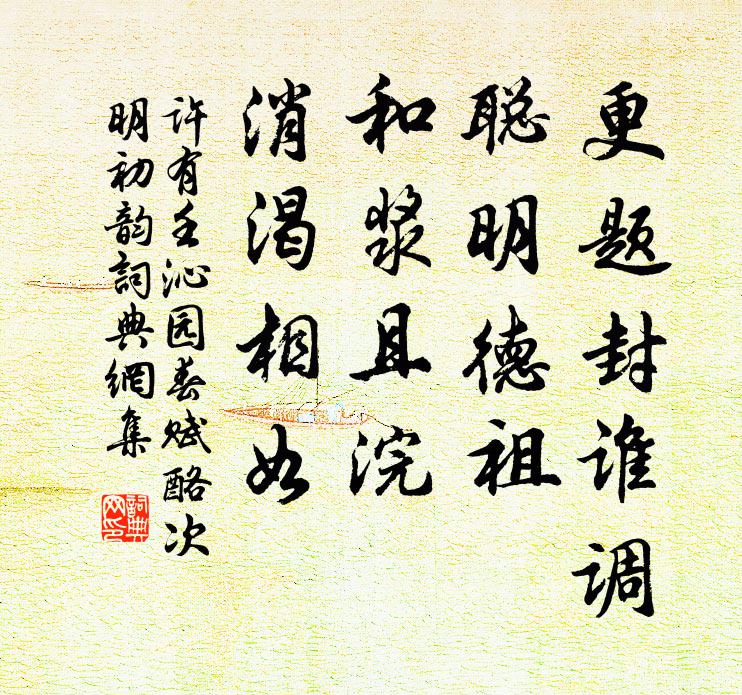 更题封谁调
聪明德祖
和浆且浣
消渴相如
许有壬沁园春赋酪次
明初韵詞典網集
詞典
网印